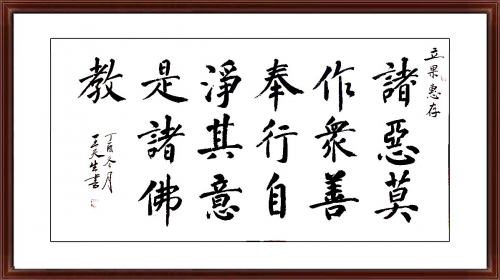 立果惠存
諸惡莫
作眾善
奉行自
淨其意
是諸佛
教
丁酉冬月
王天生書